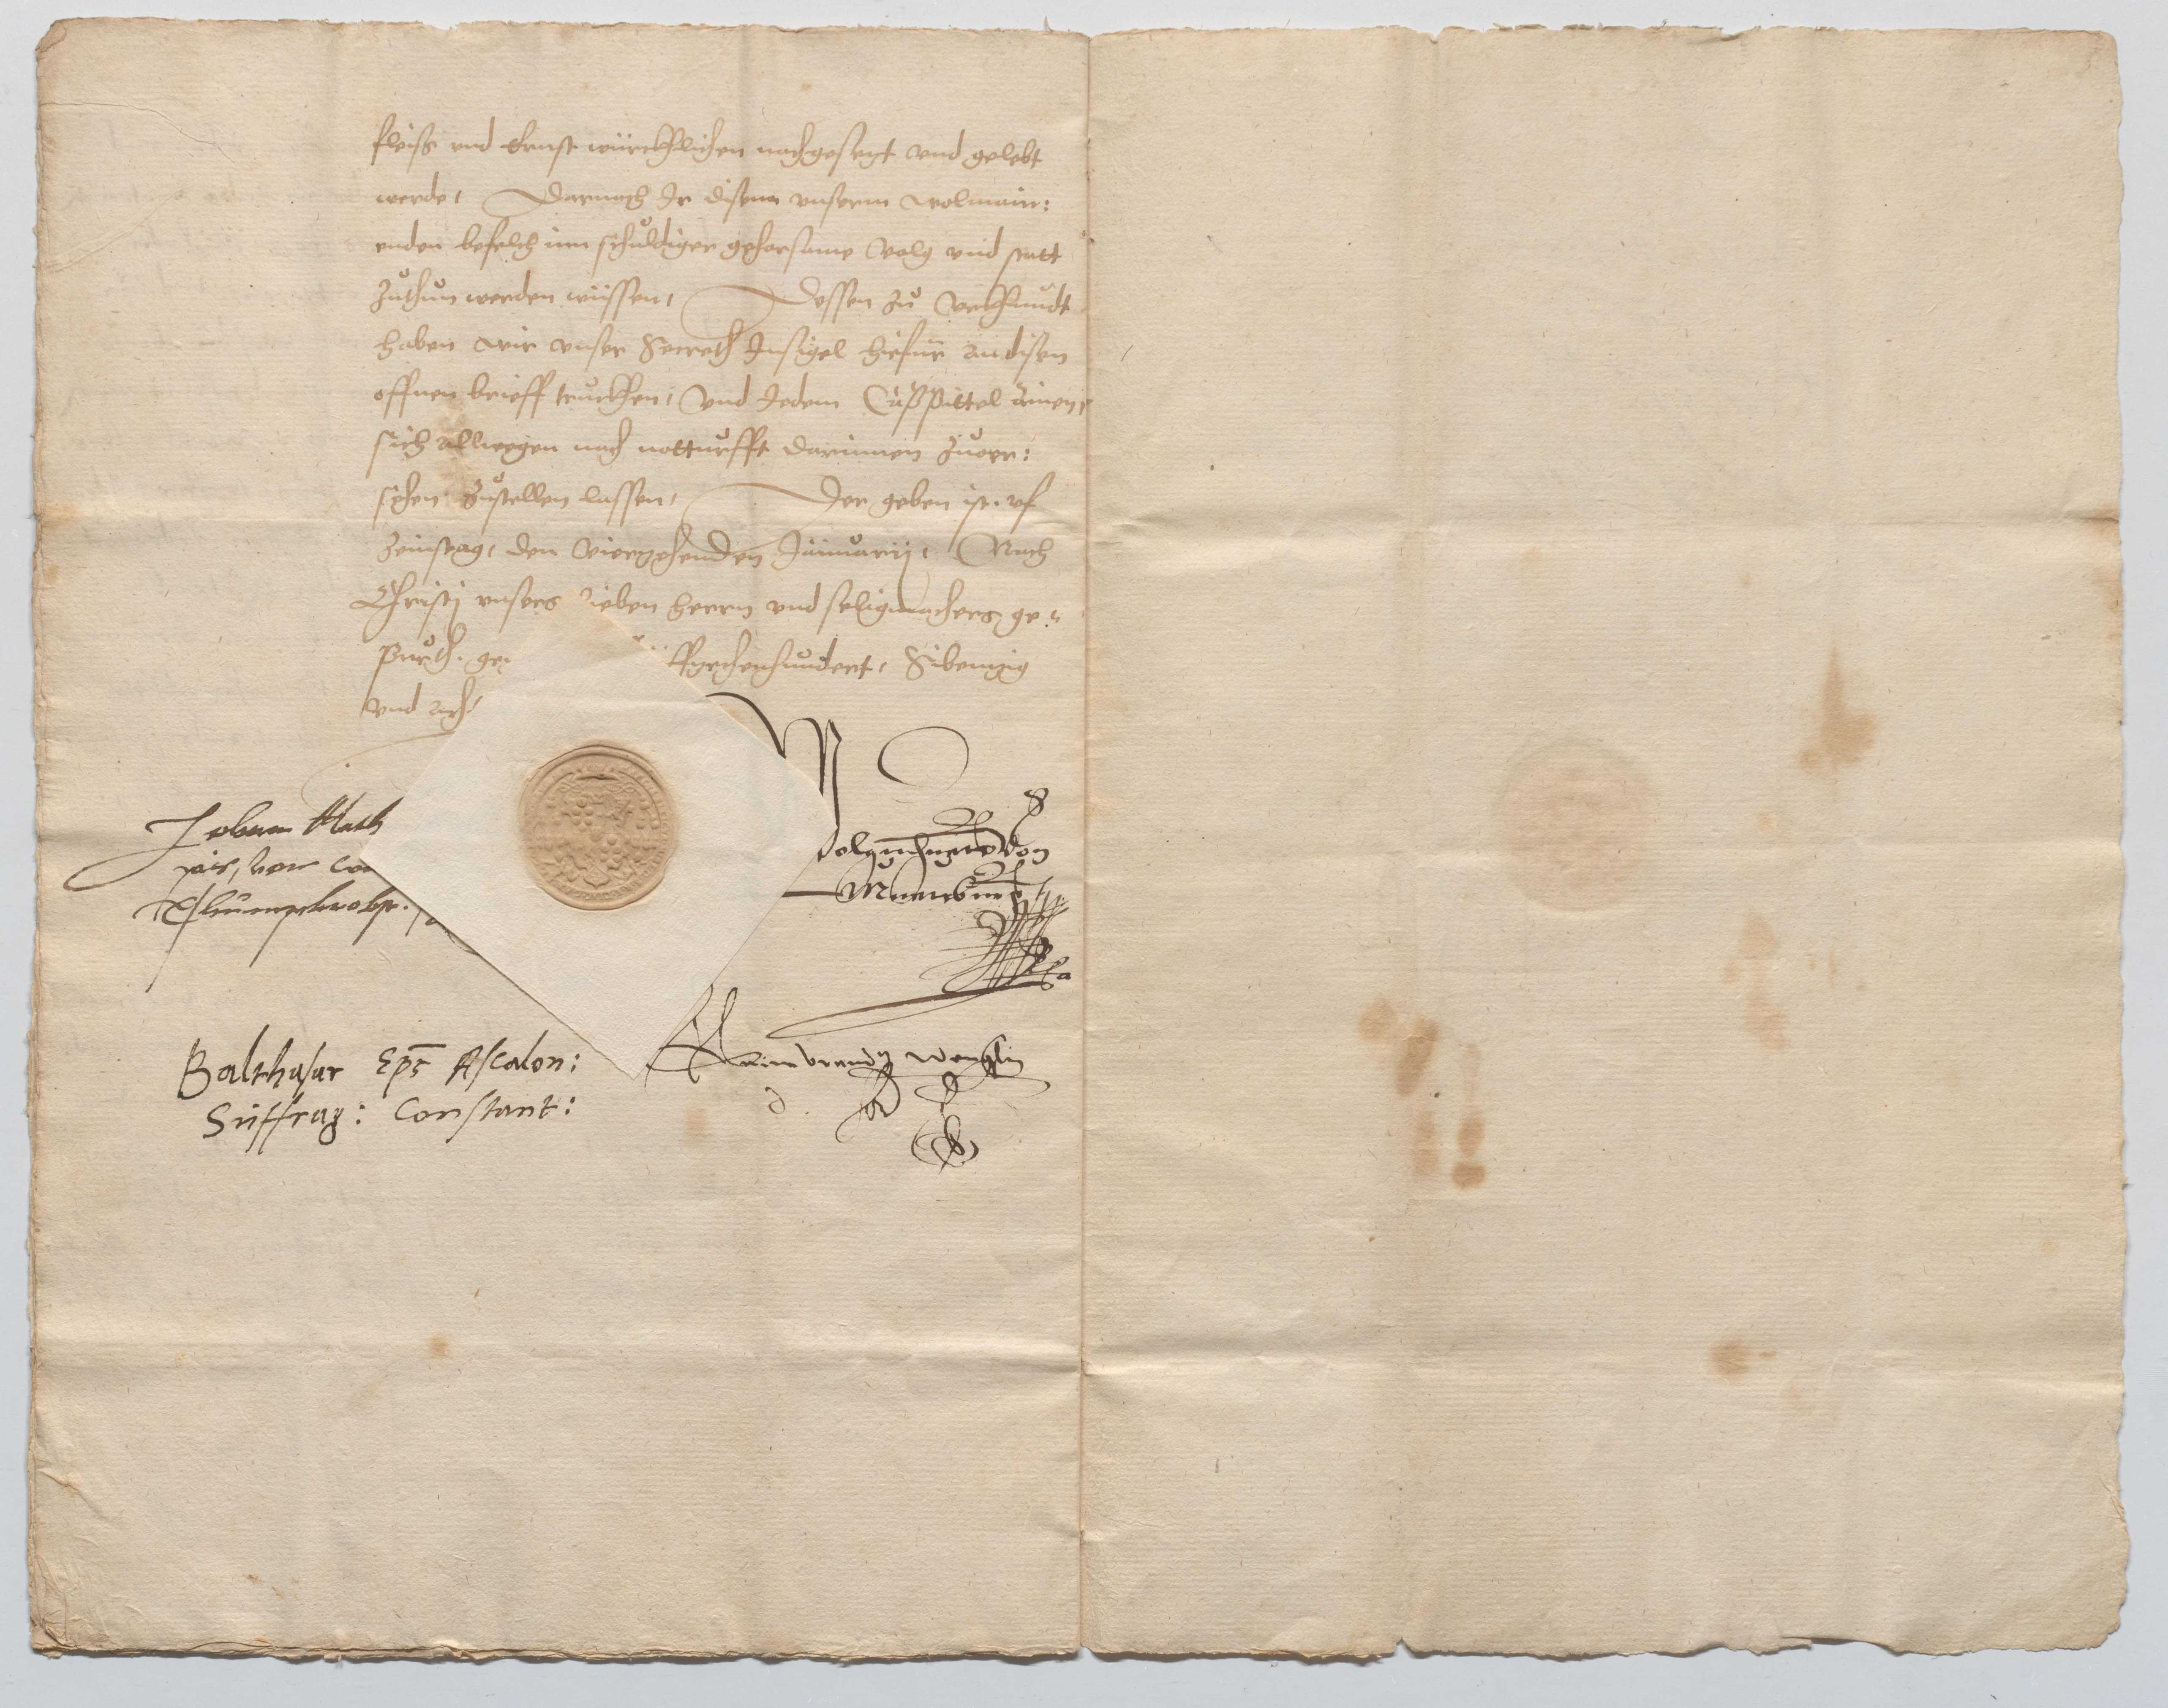 fleiss vnd Ernst würckhlichen nachgesetzt vnd gelebt
werde, Darnach Ir disem vnserm wolmain:
enden befelch inn schuldiger gehorsame volg vnd statt
zuthun werden wüssen, Dessen zu vrkhundt
haben wir vnser Secreth Insigel hiefür an disen
offnen brieff truckhen, vnd Jedem Capittel ainen,
sich allwegen nach notturfft darinnen zuer:
sehen zustellen lassen, Der geben ist vf
Zeinstag, den vierzehenden Januarij, Nach
Christj vnsers lieben herrn vnd seligmachers ge:
purth. hundert, Sibentzig
vnd ach
Johann
von
Balthasar Eps Ascalon:
Suffrag: Constant:
von